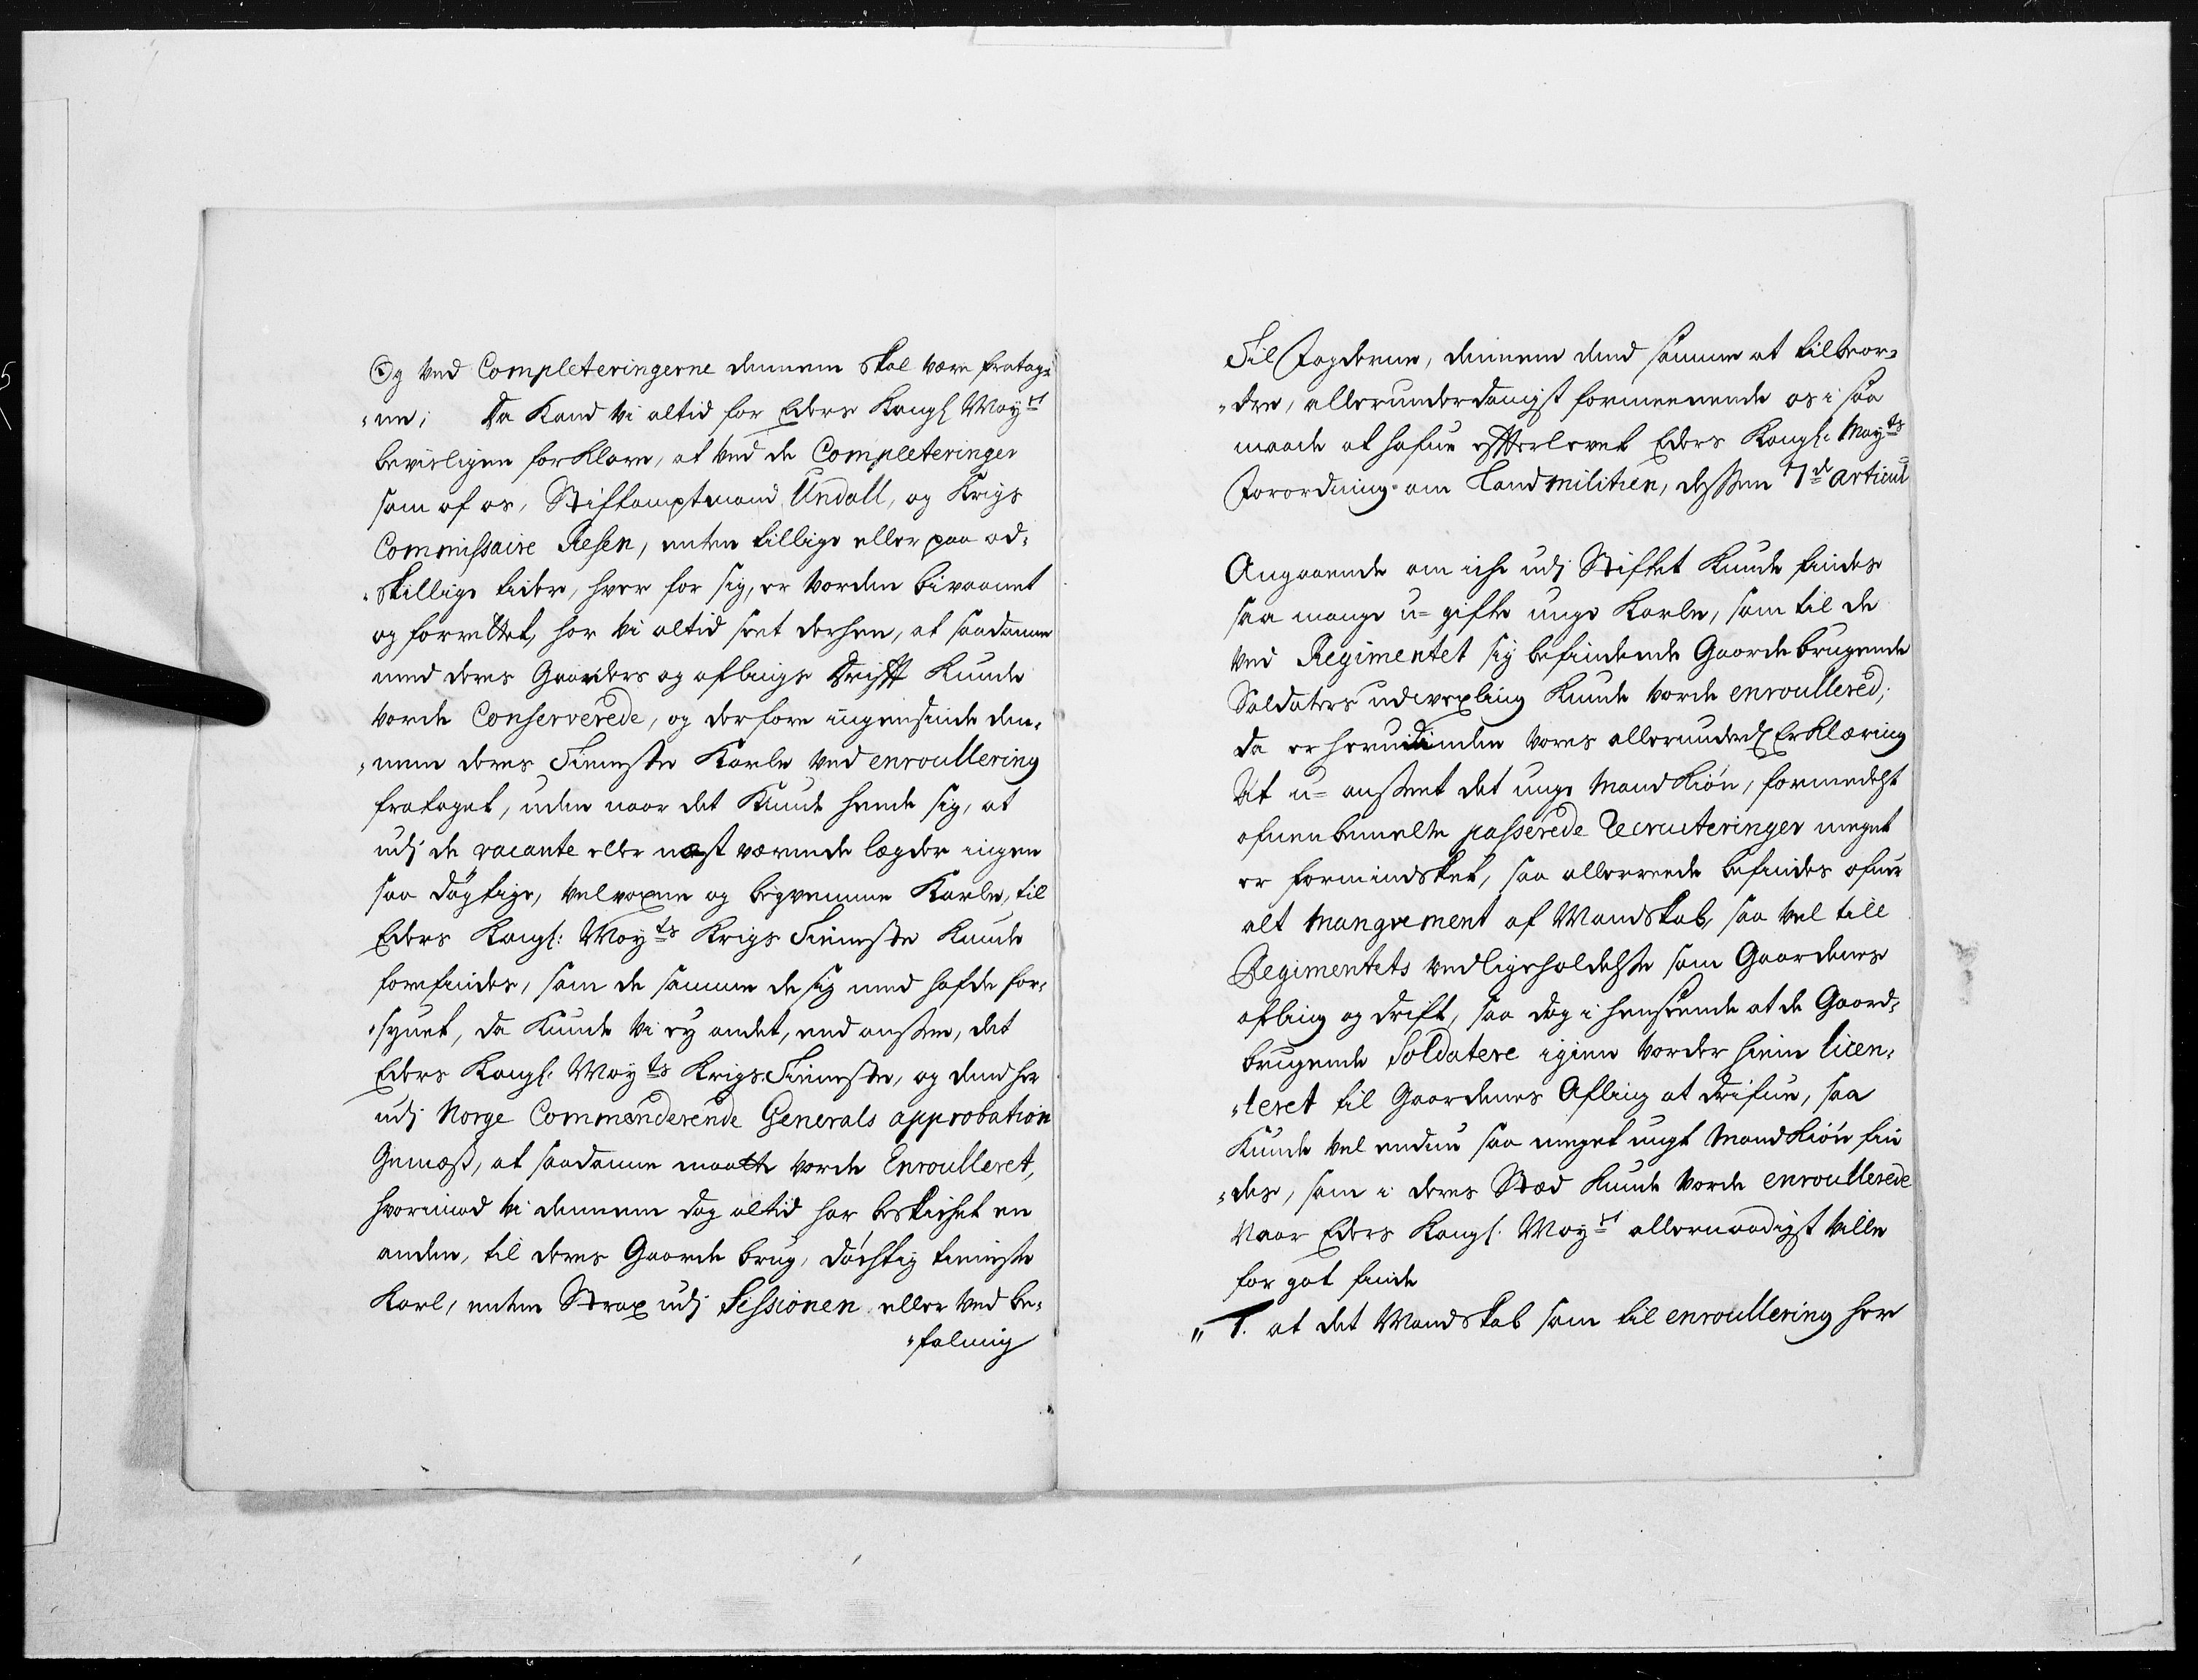 Og ved Completeringerne dennem skal være fratag-
"ne; Da Kand vi altid for Eders Kongl May:tt
bevisligen forklare, at ved de Completeringer
som af os, Stiftamptmand Undall, og Krigs
Commissaire Resen, enten tillige eller paa ad-
"skillige tider, hver for sig, er vorden bivaanet
og forrættet, har vi altid seet derhen, at saadanne
med deres Gaarders og aflings Drifft kunde
vorde Conserverede, og derfore ingensinde den-
"nem deres Tieneste Karle ved enroullering
frataget, uden naar det kunde hende sig, at
udj de vacante eller næst værende lægder ingen
saa dögtige, velvoxne og beqvemme Karle, til
Eders Kongl: May:ts Krigs Tieneste kunde
forefindes, som de samme de sig med hafde for-
"synet, da kunde vi ey andet, end ansee, det
Eders Kongl: May:ts Krigs Tieneste, og dend her
udj Norge Commanderende Generals approbation
Gemæss, at saadanne maatte vorde Enroulleret,
hvorimod vi dennem dog altid har beskicket en
anden, til deres Gaarde brug, döchtig tieniste
Karl, enten Strax udj Sessionen eller ved be-
"faling
Til Fogderne, dennem dend samme at tilbeor-
"dre, allerunderdanigst formeenende os i saa
maade at hafue effterlevet Eders Kongl: May:ts
Forordning om Land militien, dessen 7de articul
Angaaende om icke udj Stiftet kunde findes
saa mange u-gifte unge Karle, som til de
ved Regimentet sig befindende Gaarde brugende
Soldaters udvexling kunde vorde enroullered;
da er herudinden vores allerunderd: Erklæring
At u-anseet det unge Mandkiön, formedelst
ofuenbemelte passerede recruteringer meget
er formindsket, saa allereede befindes ofuer
alt manqvement af Mandskab, saa vel till
Regimentets vedligeholdelse som Gaardenes
afling og drift, saa dog i henseende at de Gaard-
brugende Soldatere igien vorder hiem licen-
"teret til Gaardenes Afling at drifue, saa
kunde vel endnu saa meget ungt Mandkiön fin
"des, som i deres Stæd kunde vorde enroullerede
Naar Eders Kongl. May:tt allernaadigst ville
for got finde
" 1. at det Mandskab som til enroullering her